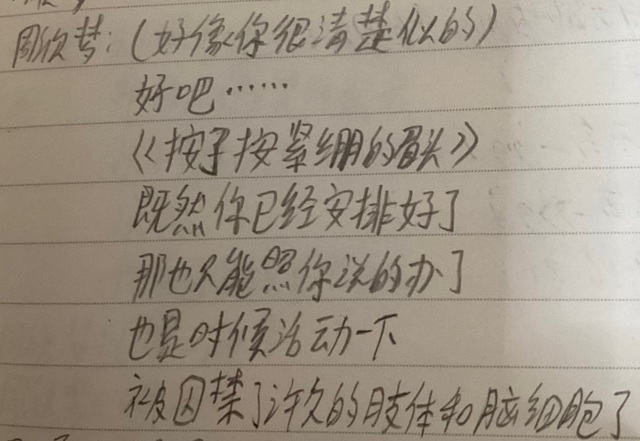 周欣梦:(好像你很清楚似的)
好吧……
《按了按紧绷的眉头》
既然你已经安排好了
那也只能照你说的办了
也是时候活动一下
被囚禁了许久的肢体和脑细胞了